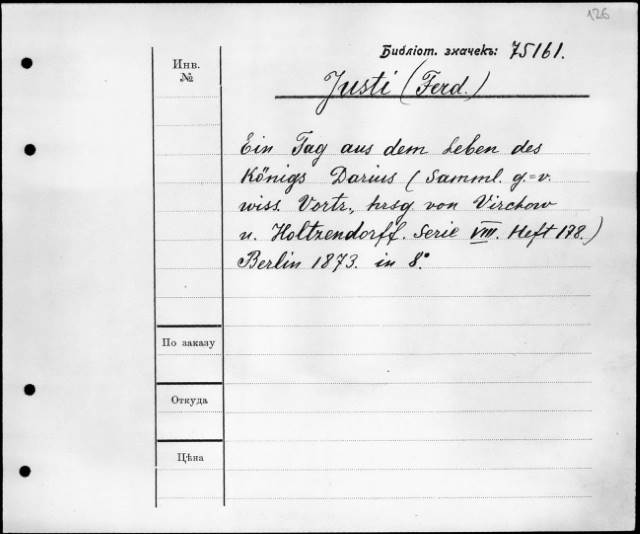 126
Библіот. значекъ: 75161.
Инв.
№
Justi (Ferd.)
Ein Tag aus dem Leben des
Königs Darius (Samml. g.=v.
wiss. Vortr., hrsg. von Virchow
u. Holtzendorff. Serie VIII. Heft 178.)
Berlin 1873. in 8.°
По заказу
Откуда
Цѣна